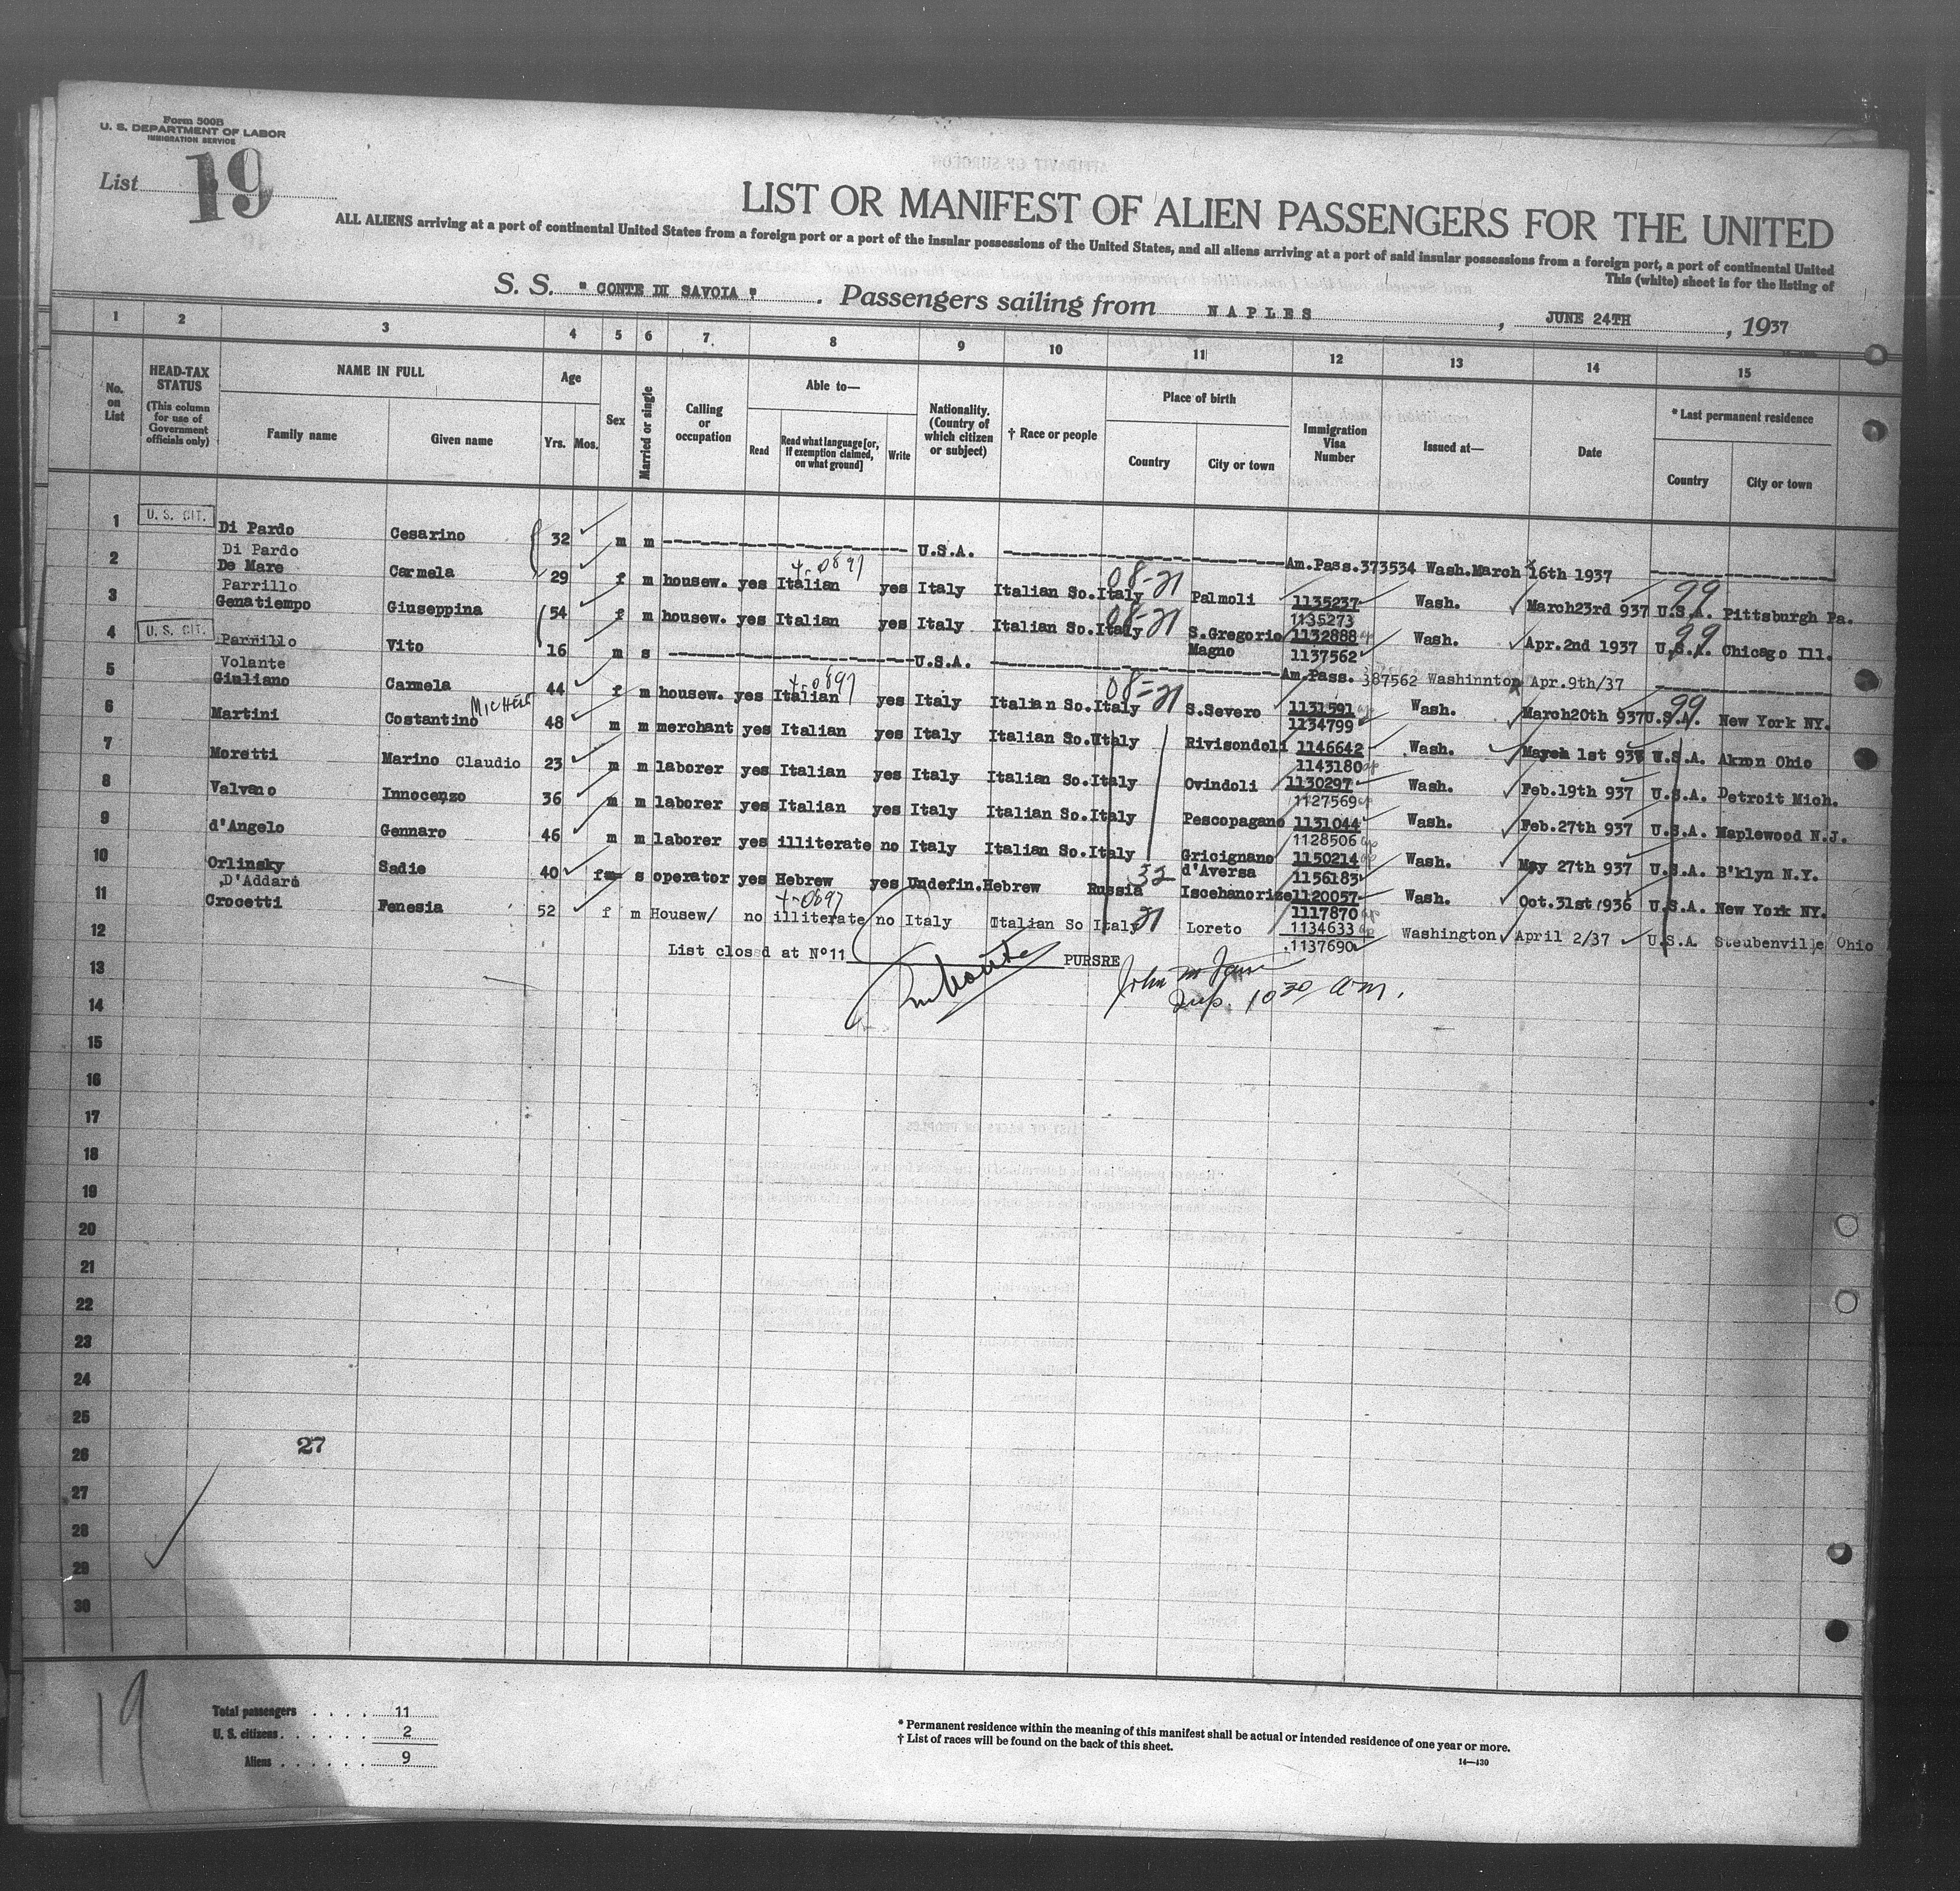 Form 500B
U. S. DEPARTMENT OF LABOR
IMMIGRATION SERVICE
List 19
LIST OR MANIFEST OF ALIEN PASSENGERS FOR THE UNITED
ALL ALIENS arriving at a port of continental United States from a foreign port or a port of the insular possessions of the United States, and all aliens arriving at a port of said insular possessions from a foreign port, a port of continental United
This (white) sheet is for the listing of
S. S. " CONTE DI SAVOIA " . Passengers sailing from NAPLES , JUNE 24TH , 1937
1 2 3 4 5 6 7 8 9 10 11 12 13 14 15
No. on List
HEAD-TAX STATUS
(This column for use of Government officials only)
NAME IN FULL
Family name Given name
Age
Yrs. Mos.
Sex
Married or single
Calling or occupation
Able to—
Read
Read what language [or, if exemption claimed, on what ground]
Write
Nationality. (Country of which citizen or subject)
† Race or people
Place of birth
Country City or town
Immigration Visa Number
Issued at—
Date
* Last permanent residence
Country City or town
1 U. S. CIT. Di Pardo Cesarino 32 m m U.S.A. Am.Pass.373534 Wash. March 16th 1937
2 Di Pardo
De Mare Carmela 29 f m housew. yes Italian yes Italy Italian So. Italy Palmoli 1135237 Wash. March23rd 937 U.S.A. Pittsburgh Pa.
4-0897 08-21 99
1135273
3 Parrillo
Genatiempo Giuseppina 54 f m housew. yes Italian yes Italy Italian So. Italy S.Gregorio Magno 1132888 Wash. Apr. 2nd 1937 U.S.A. Chicago Ill.
08-21 99
1137562
4 U. S. CIT. Parrillo Vito 16 m s U.S.A. Am.Pass. 387562 Washinnton Apr. 9th/37
5 Volante
Giuliano Carmela 44 f m housew. yes Italian yes Italy Italian So. Italy S.Severo 1131591 Wash. March20th 937 U.S.A. New York NY.
4-0897 08-21 99
1134799
6 Martini Costantino MICHELE 48 m m merchant yes Italian yes Italy Italian So. Italy Rivisondoli 1146642 Wash. 1st 937 U.S.A. Akron Ohio
1143180
7 Moretti Marino Claudio 23 m m laborer yes Italian yes Italy Italian So. Italy Ovindoli 1130297 Wash. Feb. 19th 937 U.S.A. Detroit Mich.
1127569
8 Valvano Innocenzo 36 m m laborer yes Italian yes Italy Italian So. Italy Pescopagano 1131044 Wash. Feb. 27th 937 U.S.A. Maplewood N.J.
1128506
9 d'Angelo Gennaro 46 m m laborer yes illiterate no Italy Italian So. Italy Gricignano d'Aversa 1150214 Wash. May 27th 937 U.S.A. B'klyn N.Y.
1156183
10 Orlinsky Sadie 40 f s operator yes Hebrew yes Undefin. Hebrew Russia 32 1120057 Wash. Oct. 31st 1936 U.S.A. New York NY.
1117870
11 D'Addaro
Crocetti Fenesia 52 f m Housew/ no illiterate no Italy Italian So Italy Loreto 1134633 Washington April 2/37 U.S.A. Steubenville Ohio
4-0897 21
1137690
12 List closed at N°11 PURSRE
13 John M
14 Insp. 10 30 am.
15
16
17
18
19
20
21
22
23
24
25
26 27
27
28
29
30
19
Total passengers . . . . 11
U. S. citizens . . . . . . 2
Aliens . . . . . . 9
* Permanent residence within the meaning of this manifest shall be actual or intended residence of one year or more.
† List of races will be found on the back of this sheet.
14—430